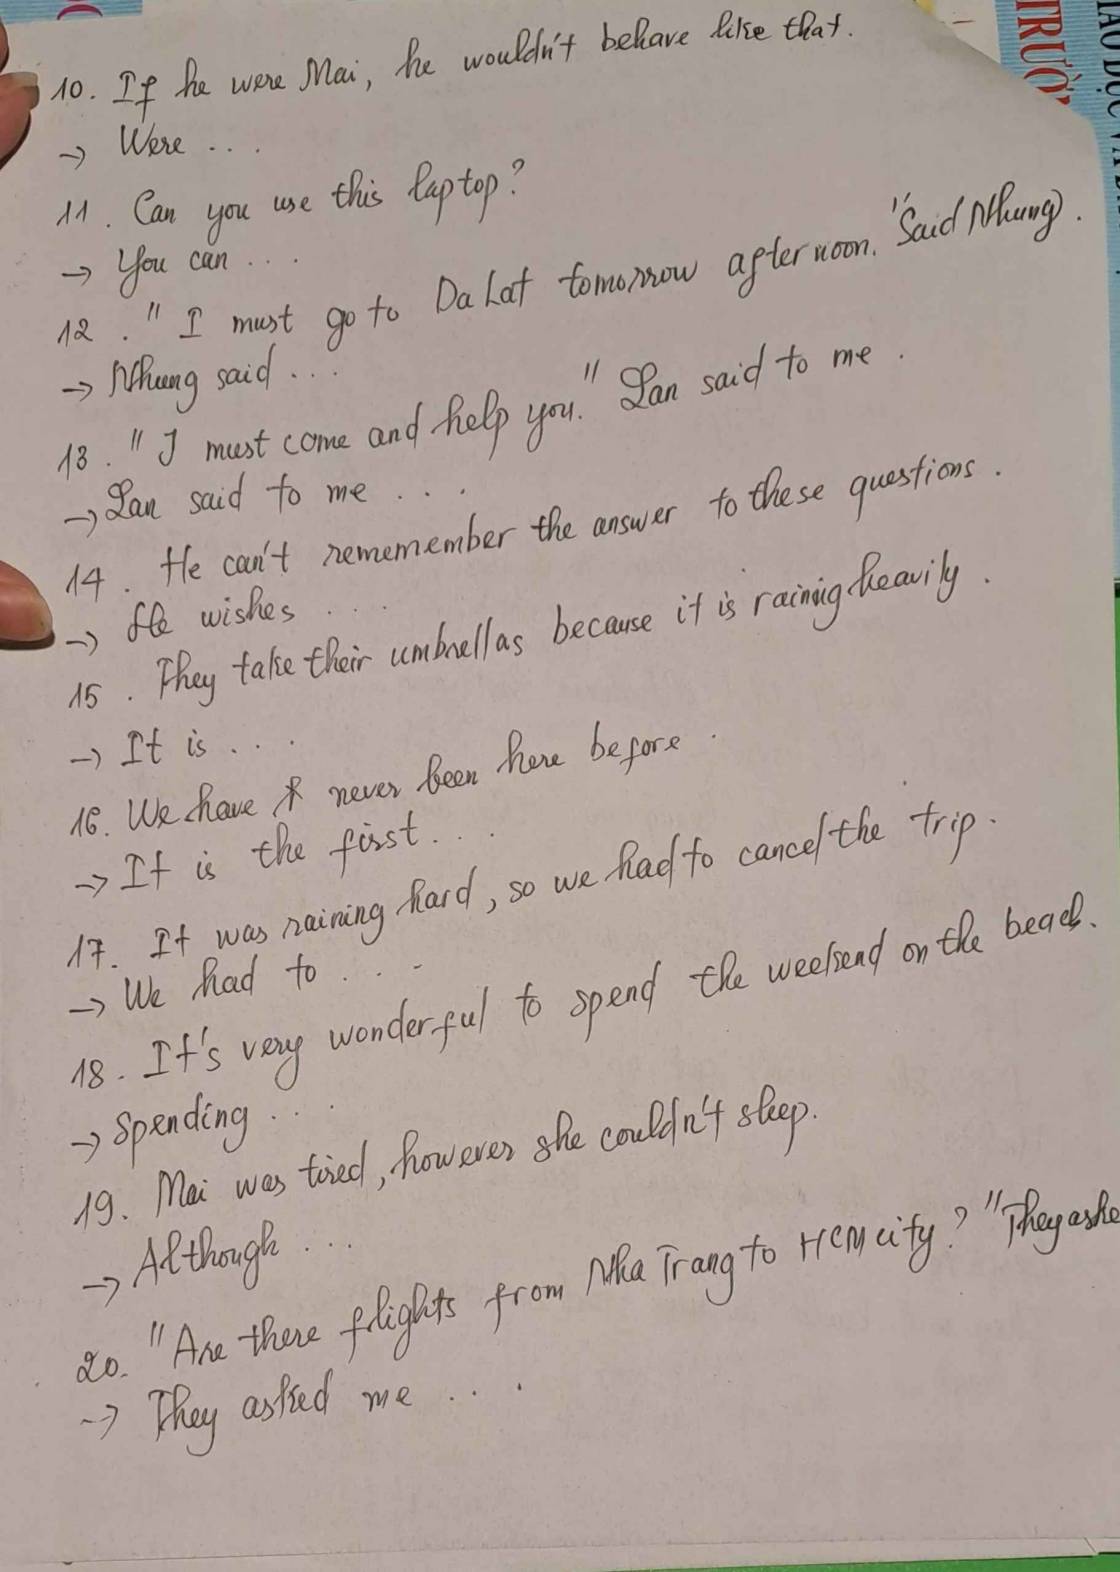 10. If he were Mai, he wouldn't behave like that.
→ Were ...
11. Can you use this laptop?
→ You can ...
12. "I must go to Da Lat tomorrow afternoon." Said Nhung.
→ Nhung said ...
13. "I must come and help you." Lan said to me.
→ Lan said to me ...
14. He can't rememember the answer to these questions.
→ He wishes ...
15. They take their umbrellas because it is raining heavily.
→ It is ...
16. We have never been here before.
→ It is the first ...
17. It was raining hard, so we had to cancel the trip.
→ We had to ...
18. It's very wonderful to spend the weekend on the beach.
→ Spending ...
19. Mai was tired, however she couldn't sleep.
→ Although ...
20. "Are there flights from Nha Trang to HCM city? "They aske
→ They asked me ...
TRƯỜ